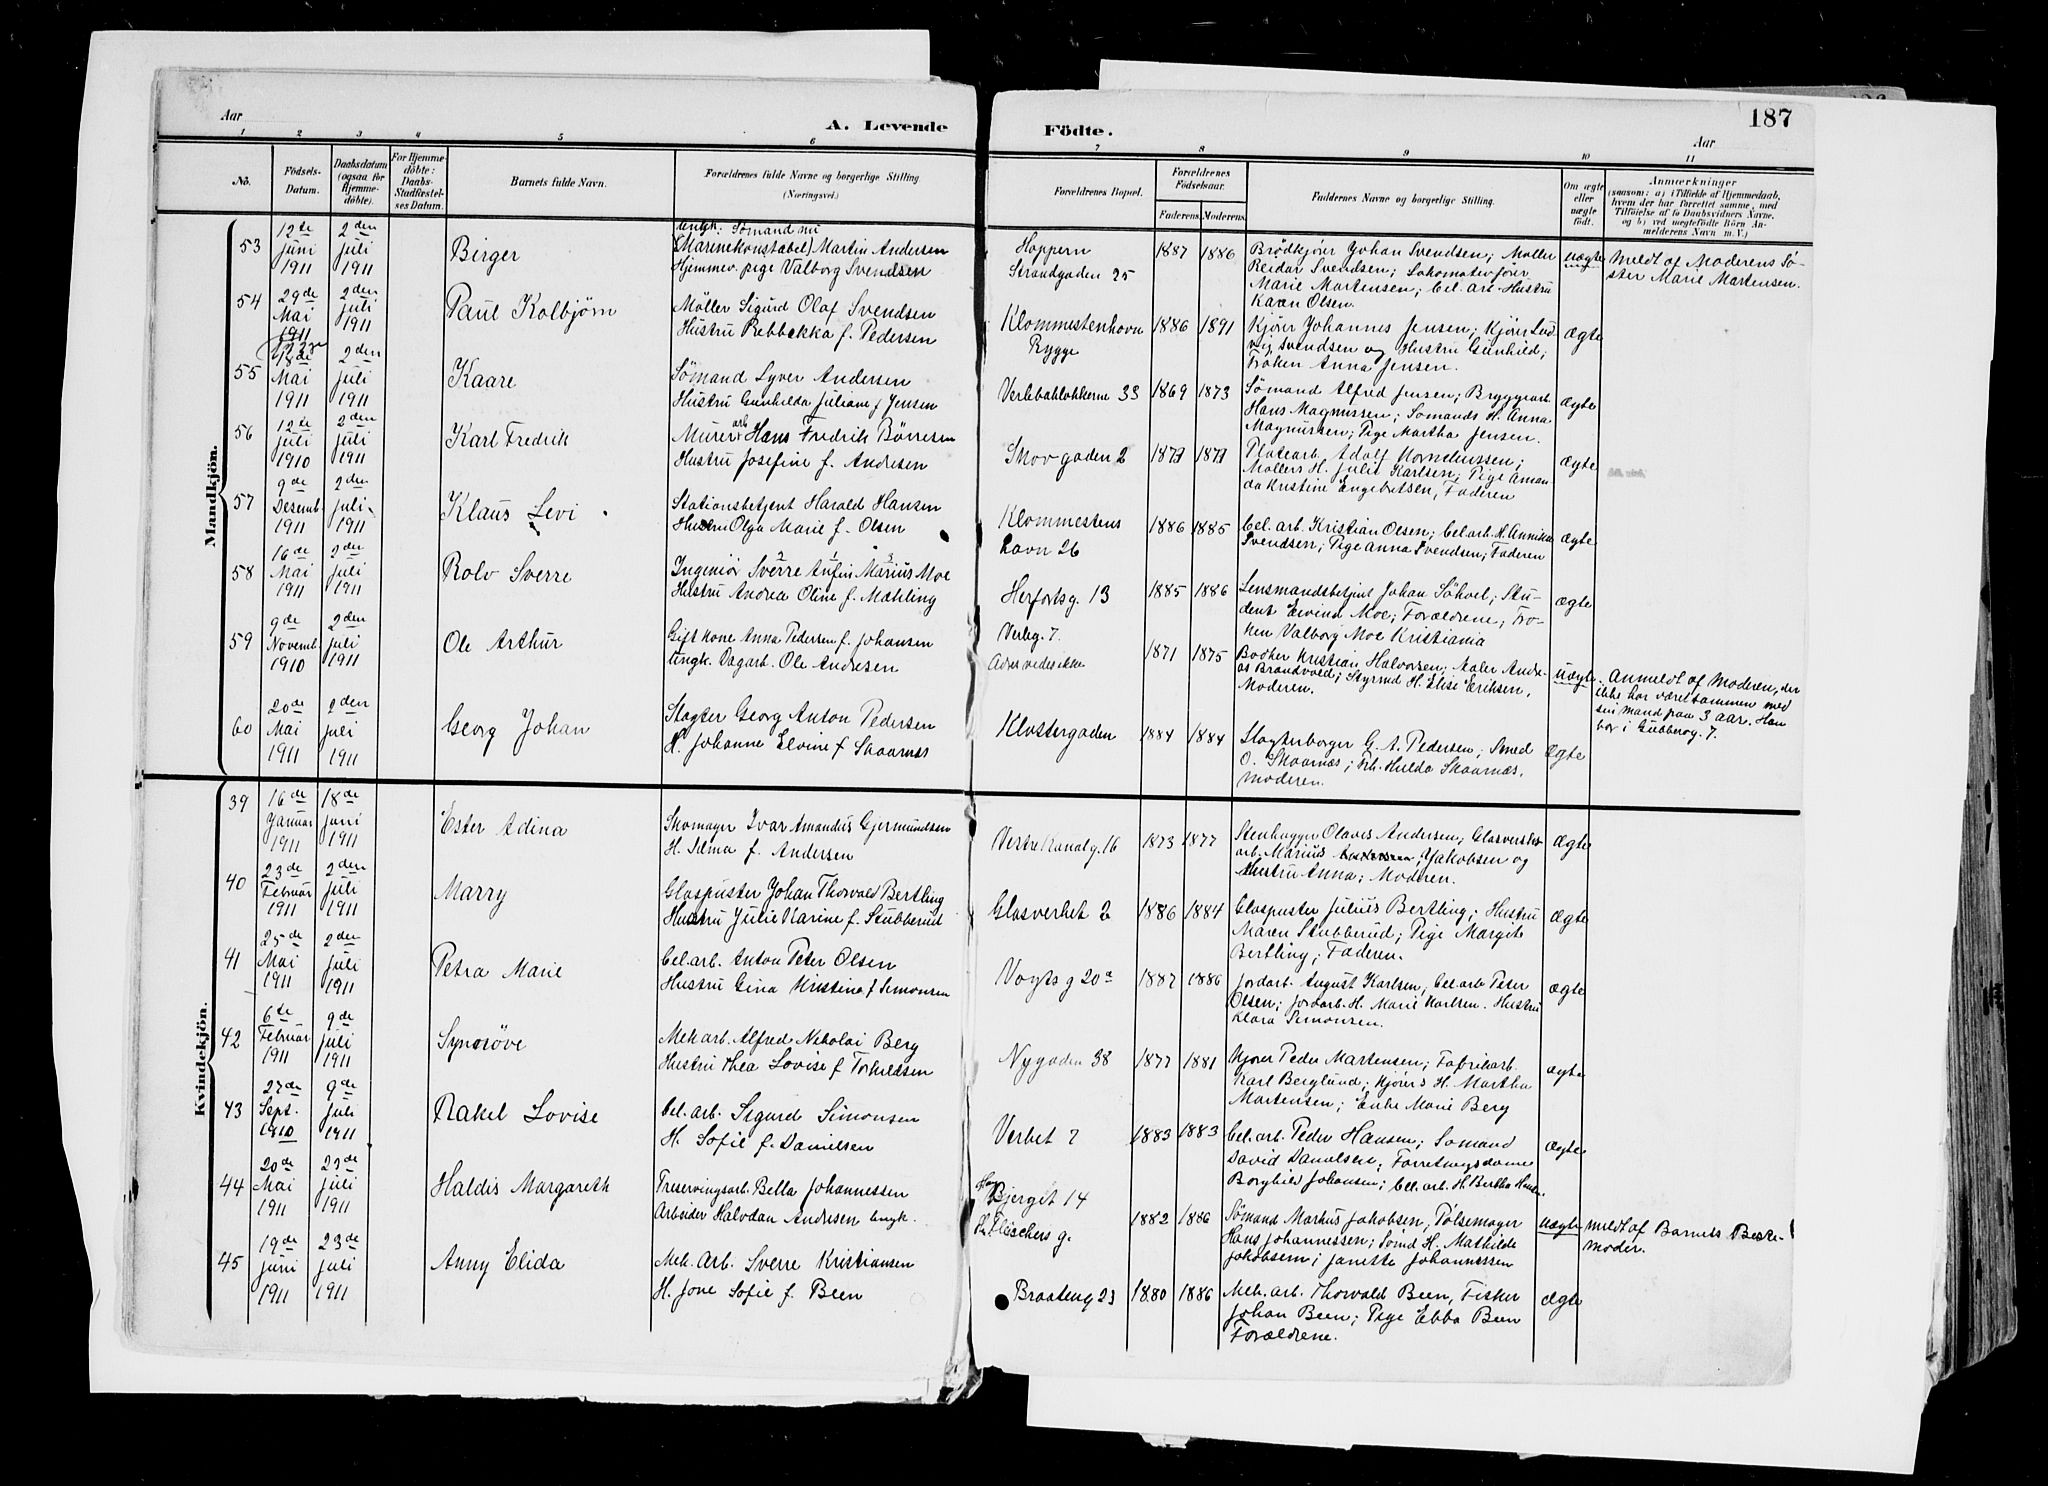 187
Aar
A. Levende Födte.
Aar
1 2 3 4 5 6 7 8 9 10 11
No.
Födsels-Datum.
Daabsdatum (ogsaa for Hjemmedöbte).
For Hjemmedöbte: Daabs-Stadfæstelses Datum.
Barnets fulde Navn.
Forældrenes fulde Navne og borgerlige Stilling
(Næringsvei.)
Forældrenes Bopæl.
Forældrenes Födselsaar.
Faderens. Moderens.
Faddernes Navne og borgerlige Stilling.
Om ægte eller uægte födt.
Anmærkninger
(saasom: a) i Tilfælde af Hjemmedaab,
hvem der har forrettet samme, med
Tilföielse af to Daabsvidners Navne,
og b) ved uægtefödte Börn Anmelderens Navn m. V.)
Mandkjön.
53 12te Juni 1911 2den Juli 1911
Birger
Ungk. Sömand nu
(Marinekonstabel) Martin Andersen
Hjemmev. pige Valborg Svendsen
Hoppern
Strandgaden 25
1887 1886
Brödkjörer Johan Svendsen; Möller
Reidar Svendsen; Lokomotivförer
Marie Martensen; Cel. arb. Hustru
Karen Olsen.
uægte
Meldt af Moderens Sö-
ster Marie Martensen.
54 29de Mai 1911 2den Juli 1911
Paul Kolbjörn
Möller Sigurd Olaf Svendsen
Hustru Rebbekka f. Pedersen
Klommestenhavn
Rygge
1886 1891
Kjörer Johannes Jensen; Kjörer Lud-
vig Svendsen og Hustru Gunhild;
Fröken Anna Jensen.
ægte
55 18de Mai 1911 2den Juli 1911
Kaare
Sömand Syver Andersen
Hustru Gunhilda Juliane f Jensen
Verlebakkerne 33
1869 1873
Sömand Alfred Jensen; Bryggearb
Hans Magnussen; Sömands H. Anna
Magnussen; Pige Martha Jensen.
ægte
56 12te Juli 1910 2den Juli 1911
Karl Fredrik
Murerarb Hans Fredrik Börresen
Hustru Josefine f. Andresen
Skovgaden 2
1877 1877
Pladearb. Adolf
Möllers H. Julie Karlsen; Pige Aman-
da Kristine Engebretsen, Faderen
ægte
57 9de Desemb. 1911 2den Juli 1911
Klaus Levi
Stationsbetjent Harald Hansen
Hustru Olga Marie f. Olsen
Klommestens
havn 26
1886 1885
Cel. arb. Kristian Olsen; Cel. arb. H. Annika
Svendsen; Pige Anna Svendsen; Faderen
ægte
58 16de Mai 1911 2den Juli 1911
Rolv Sverre
Ingeniör Sverre Marius Moe
Hustru Andrea Oline f. Mæhling
Herfordsg. 13
1885 1886
Lensmandsbetjent Johan Söhoel; Stu-
dent Eivind Moe; Forældrene; Frö-
ken Valborg Moe Kristiania
ægte
59 9de Novemb. 1910 2den Juli 1911
Ole Arthur
Gift kone Anna Pedersen f. Johansen
Ungk. Dagarb. Ole Andresen
Verleg. 7.
Adr. vides ikke
1871 1875
Bödker Kristian Halvorsen; Maler Andre-
as Brandvold; Styrmd H. Elise Eriksen,
Moderen.
uægte
Anmeldt af Moderen, der
ikke har været sammen med
sin mand paa 3 aar. Han
bor i Gubberog. 7.
60 20de Mai 1911 2den Juli 1911
Georg Johan
Slagter Georg Anton Pedersen
H. Johanne Elvine f Skaarnæs
Klostergaden
1884 1884
Slagterborger G. A. Pedersen; Smed
O. Skaarnæs; Frk. Hulda Skaarnæs.
Moderen.
ægte
Kvindekjön.
39 16de Januar 1911 18de Juni 1911
Ester Adina
Skomager Ivar Amandus Gjermundsen
H. Selma f. Andersen
Vestre Kanalg. 16
1873 1877
Stenhugger Olaves Andersen; Glasverks
arb. Marius Andersen; Jakobsen og
Hustru Anna; Moderen.
ægte
40 23de Februar 1911 2den Juli 1911
Marry
Glaspuster Johan Thorvald Bertling
Hustru Julie Karine f. Stubberud
Glasverket 2
1886 1884
Glaspuster Julius Bertling; Hustru
Maren Stubberud; Pige Margit
Bertling; Faderen.
ægte
41 25de Mai 1911 2den Juli 1911
Petra Marie
Cel. arb. Anton Peter Olsen
Hustru Gina Kristina f Simonsen
Vogts g 20a
1887 1886
Jordarb. August Karlsen; Cel. arb. Peter
Olsen; Jordarb. H. Marie Karlsen. Hustru
Klara Simonsen.
ægte
42 6te Februar 1911 9de Juli 1911
Synnöve
Mek. arb. Alfred Nikolai Berg
Hustru Thea Lovise f Torkeldsen
Nygaden 38
1877 1881
Kjörer Peder Martensen; Fabrikarb.
Karl Berglund; Kjörers H. Martha
Martensen; Enke Marie Berg
ægte
43 23de Sept. 1910 9de Juli 1911
Rakel Lovise
Cel. arb. Sigurd Simonsen
H. Sofie f. Danielsen
Verket 7
1883 1883
Cel. arb. Peder Hansen; Sömand
David Danielsen; Forretningsdame
Borghild Johansen; Cel. arb. H. Bertha Hansen.
ægte
44 20de Mai 1911 23de Juli 1911
Haldis Margareth
Preservingsarb. Bella Johannessen
Arbeider Halvdan Andresen Ungk.
Bjerget 14
Fleischers g.
1882 1886
Sömand Markus Jakobsen, Pölsemager
Hans Johannessen; Sömd H. Mathilde
Jakobsen; Janette Johannessen
uægte
Meldt af Barnets Beste-
moder.
45 19de Juni 1911 23de Juli 1911
Anny Elida
Mek. Arb. Sverre Kristiansen
H. Jove Sofie f. Been
Braateng 23
1880 1886
Mek. arb. Thorvald Been, Fisker
Johan Been; Pige Ebba Been
Forældrene.
ægte